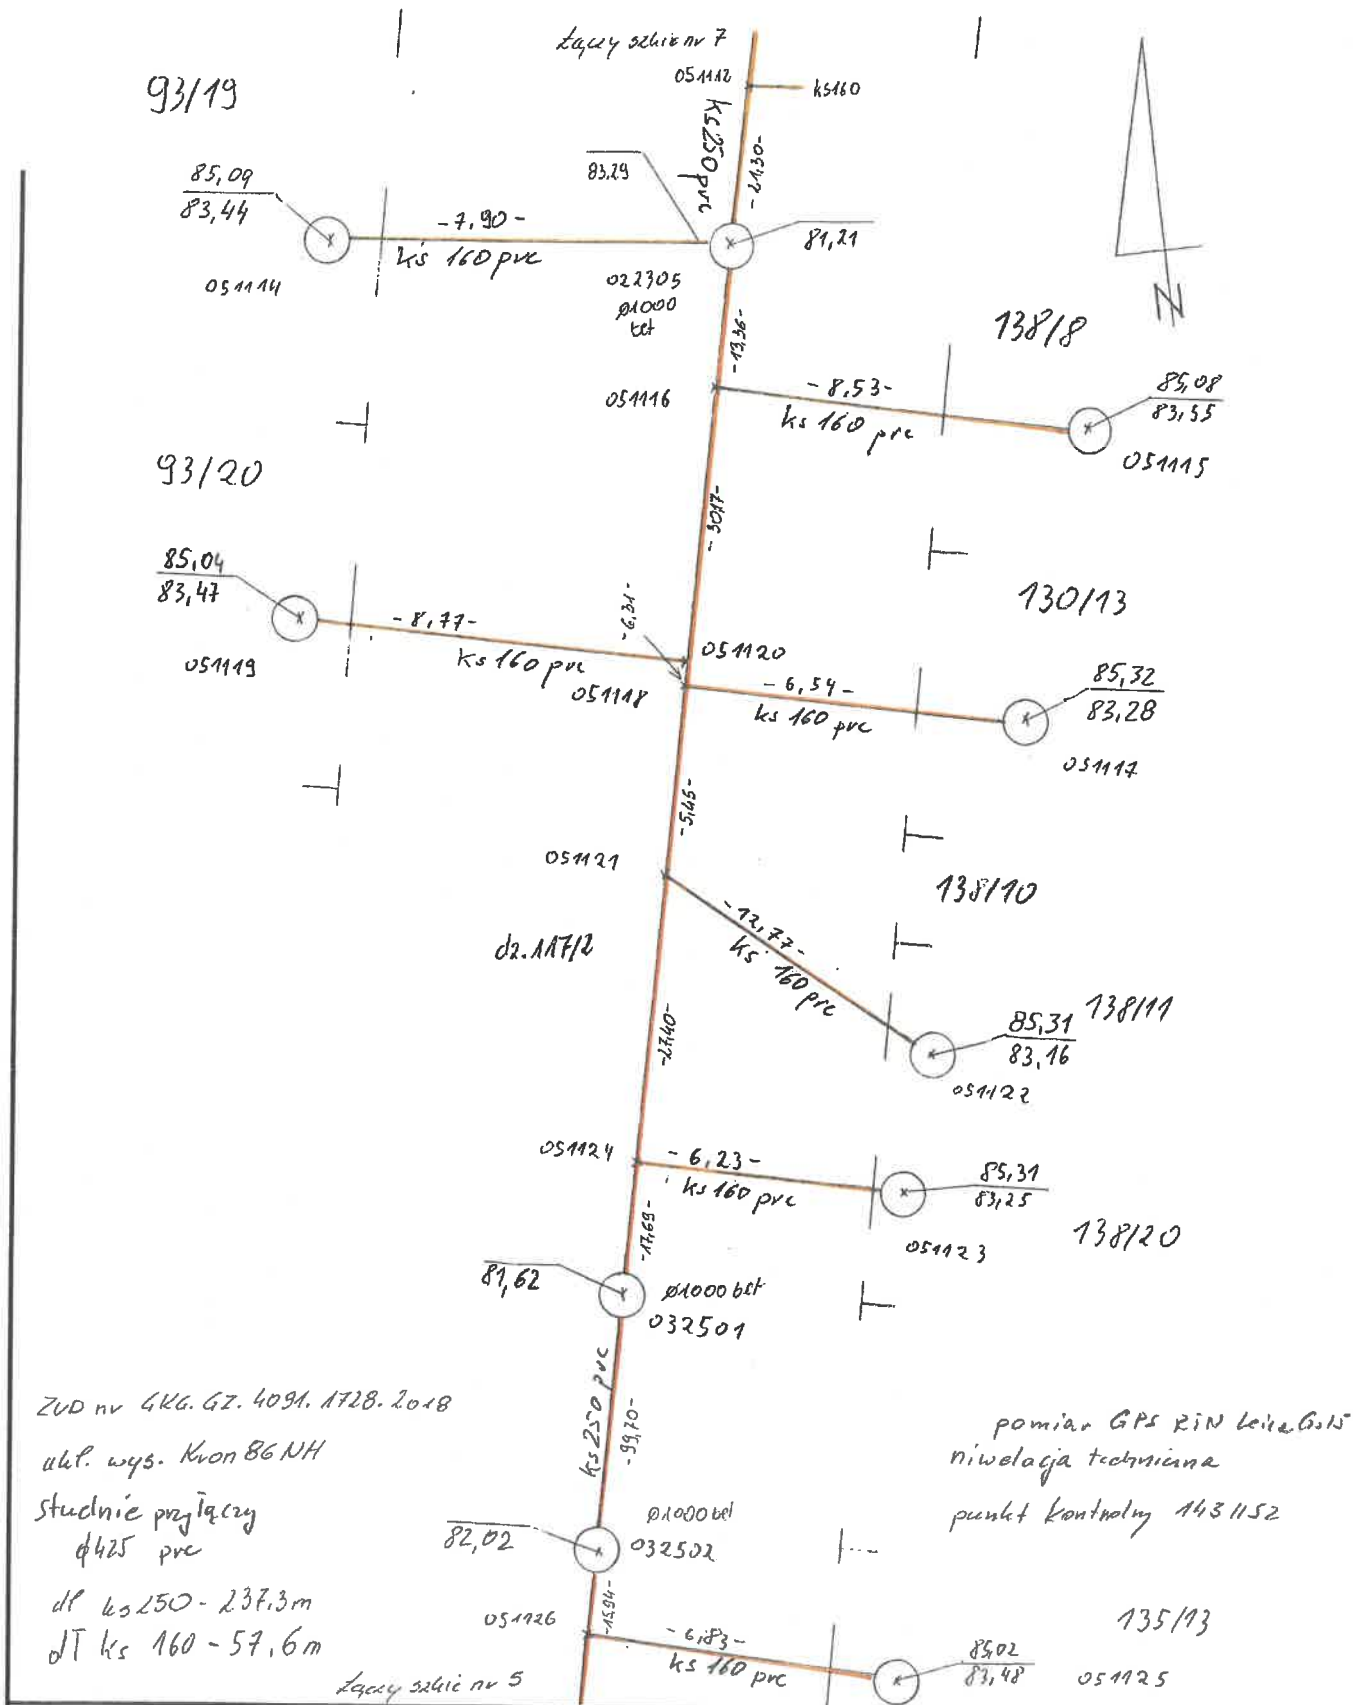 Łączy szkic nr 7
051112
ks160
93/19
ks250 pvc
-21,30-
83,29
85,09
83,44
-7,90-
ks 160 pvc
81,21
051114
022305
ø1000
bet
N
138/8
-13,36-
051116
-8,53-
ks 160 pvc
85,08
83,55
051115
93/20
-30,17-
85,04
83,47
130/13
-8,77-
ks 160 pvc
-6,31-
051119
051120
051118
-6,54-
ks 160 pvc
85,32
83,28
051117
-5,45-
051121
138/10
-12,77-
ks 160 pvc
dz.117/2
138/11
85,31
83,16
-27,40-
051122
051124
-6,23-
ks 160 pvc
85,31
83,25
051123
138/20
-17,69-
81,62
ø1000 bet
032501
ks250 pvc
-99,70-
ZUD nr GKG.GZ.4091.1728.2018
ukł. wys. Kron 86 NH
studnie przyłączy
ø425 pvc
dł ks250 - 237,3m
dł ks 160 - 57,6m
pomiar GPS RTN Leica GS15
niwelacja techniczna
punkt kontrolny 1431152
82,02
ø1000 bet
032502
-15,94-
051126
-6,83-
ks 160 pvc
135/13
85,02
83,48
051125
Łączy szkic nr 5